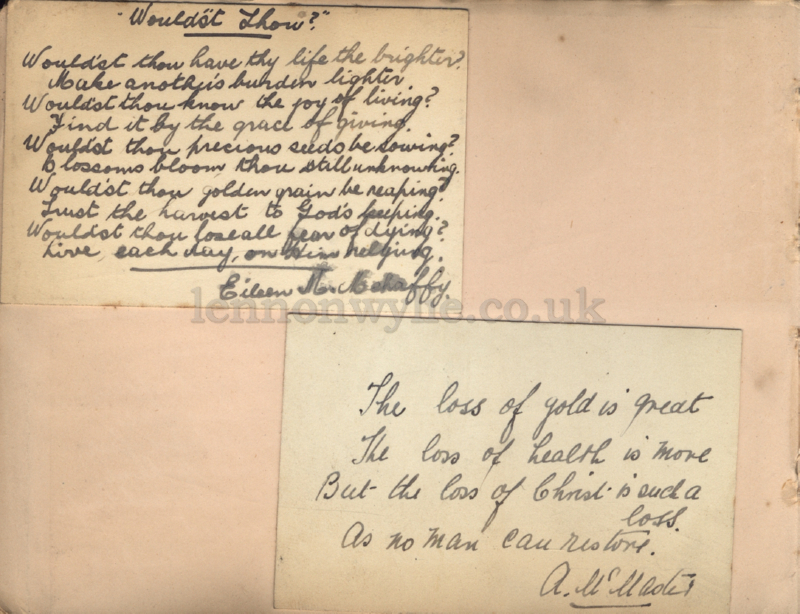 "Would'st Thou?"
Would'st thou have thy life the brighter?
Make another's burden lighter.
Would'st thou know the joy of living?
Find it by the grace of giving.
Would'st thou precious seeds be sowing?
Blossoms bloom thou still unknowing.
Would'st thou golden grain be reaping?
Trust the harvest to God's keeping.
Would'st thou lose all fear of dying?
Live, each day, on Him relying.
Eileen M. Mehaffy.
lennonwylie.co.uk
The loss of gold is great
The loss of health is more
But the loss of Christ is such a
loss.
As no man can restore.
A. McMaster